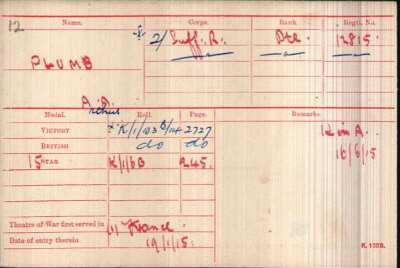 12
Name. Corps. Rank Regtl. No.
PLUMB 2/ Suff. R. Pte 12815.
A.
Medal. Roll. Page.
VICTORY K/1/103 B/14 2727
BRITISH do do
15 STAR K/1/6B 245.
Remarks.
K in A.
16/6/15
Theatre of War first served in (1) France.
Date of entry therein 19/1/15.
K. 1380.